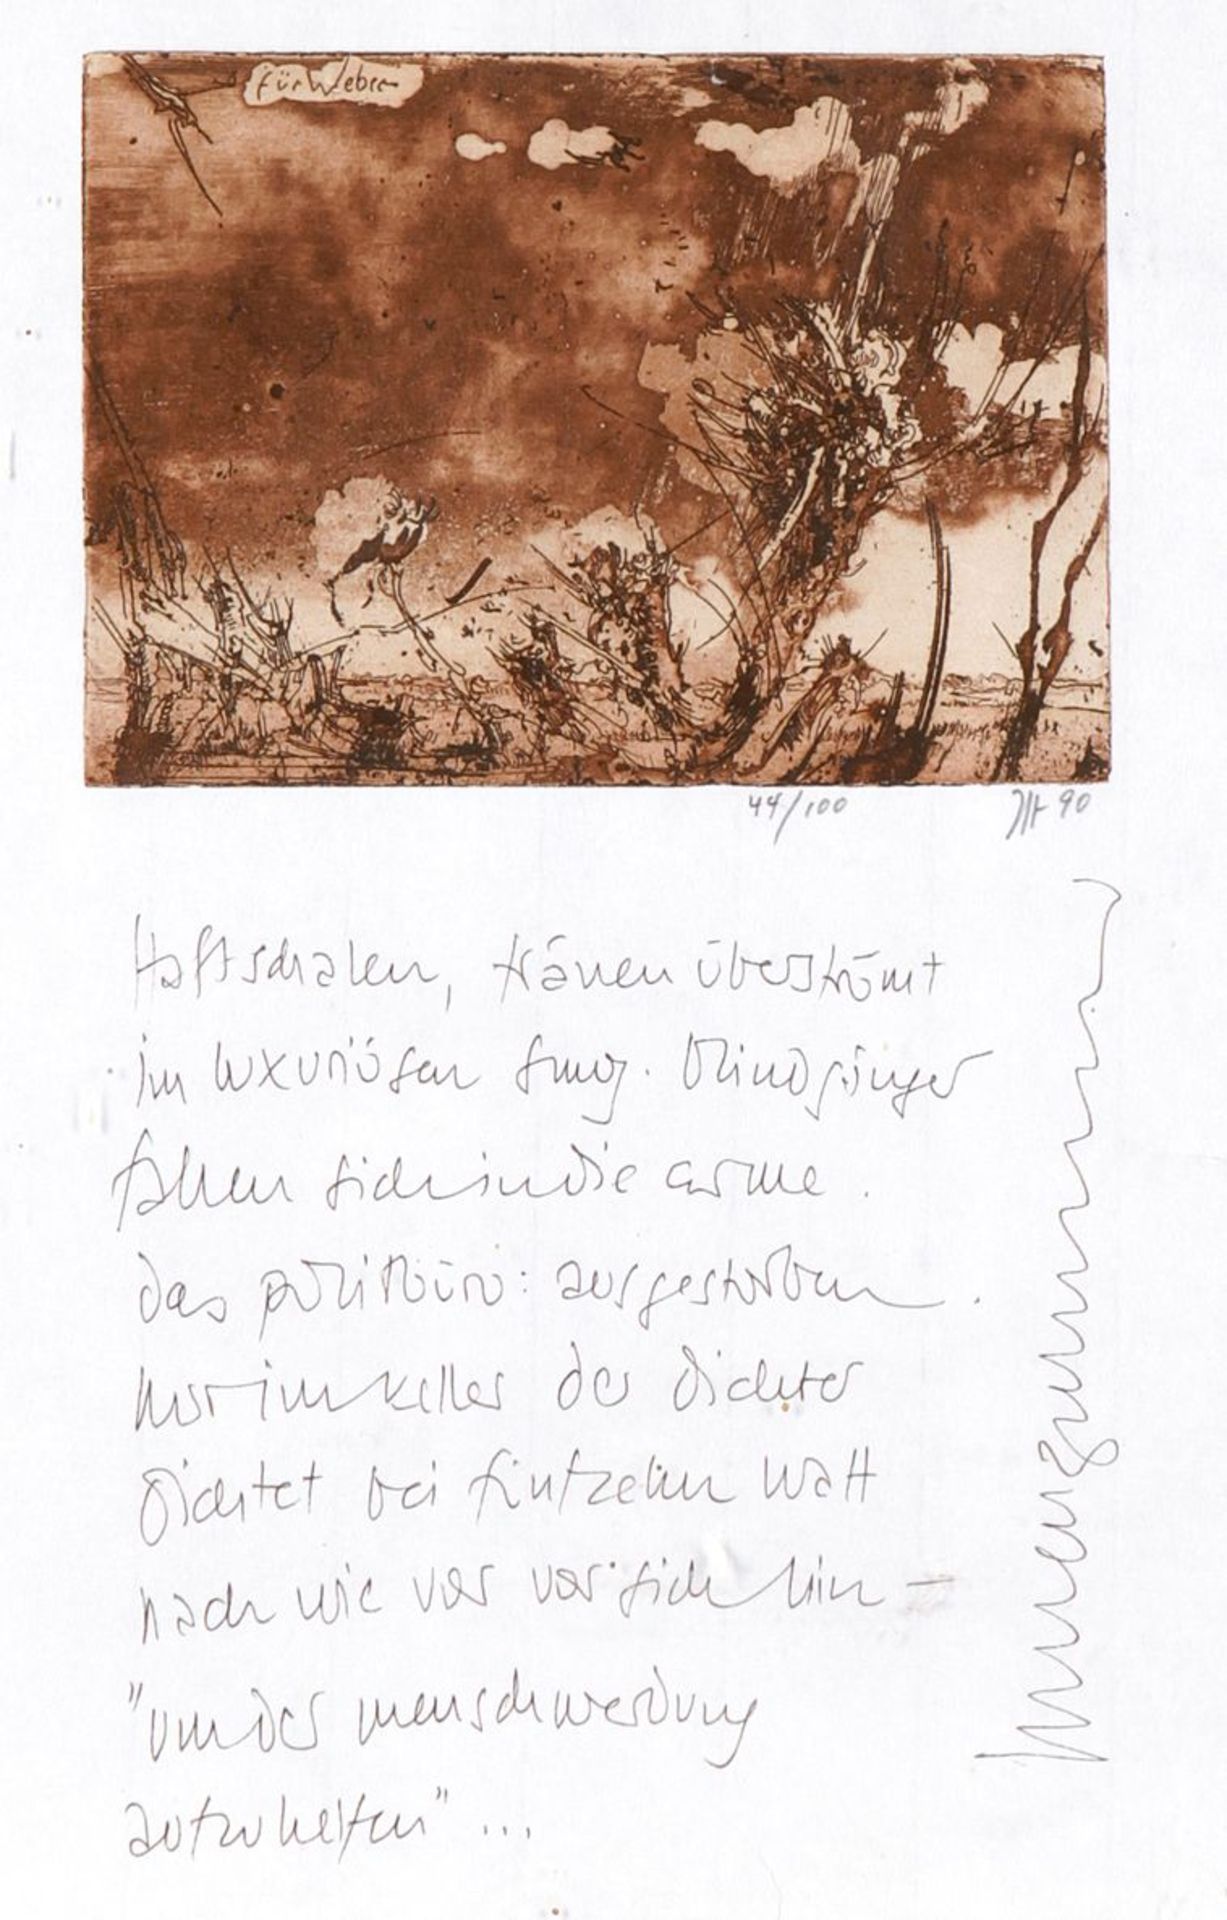 für Weber
44/100
90
Haftschalen, tränen überströmt
im luxuriösen smog. blindgänger
fallen sich in die arme.
das politbüro: ausgestorben.
nur im keller der dichter
dichtet bei fünfzehn watt
nach wie vor vor sich hin –
"um der menschwerdung
aufzuhelfen" ...